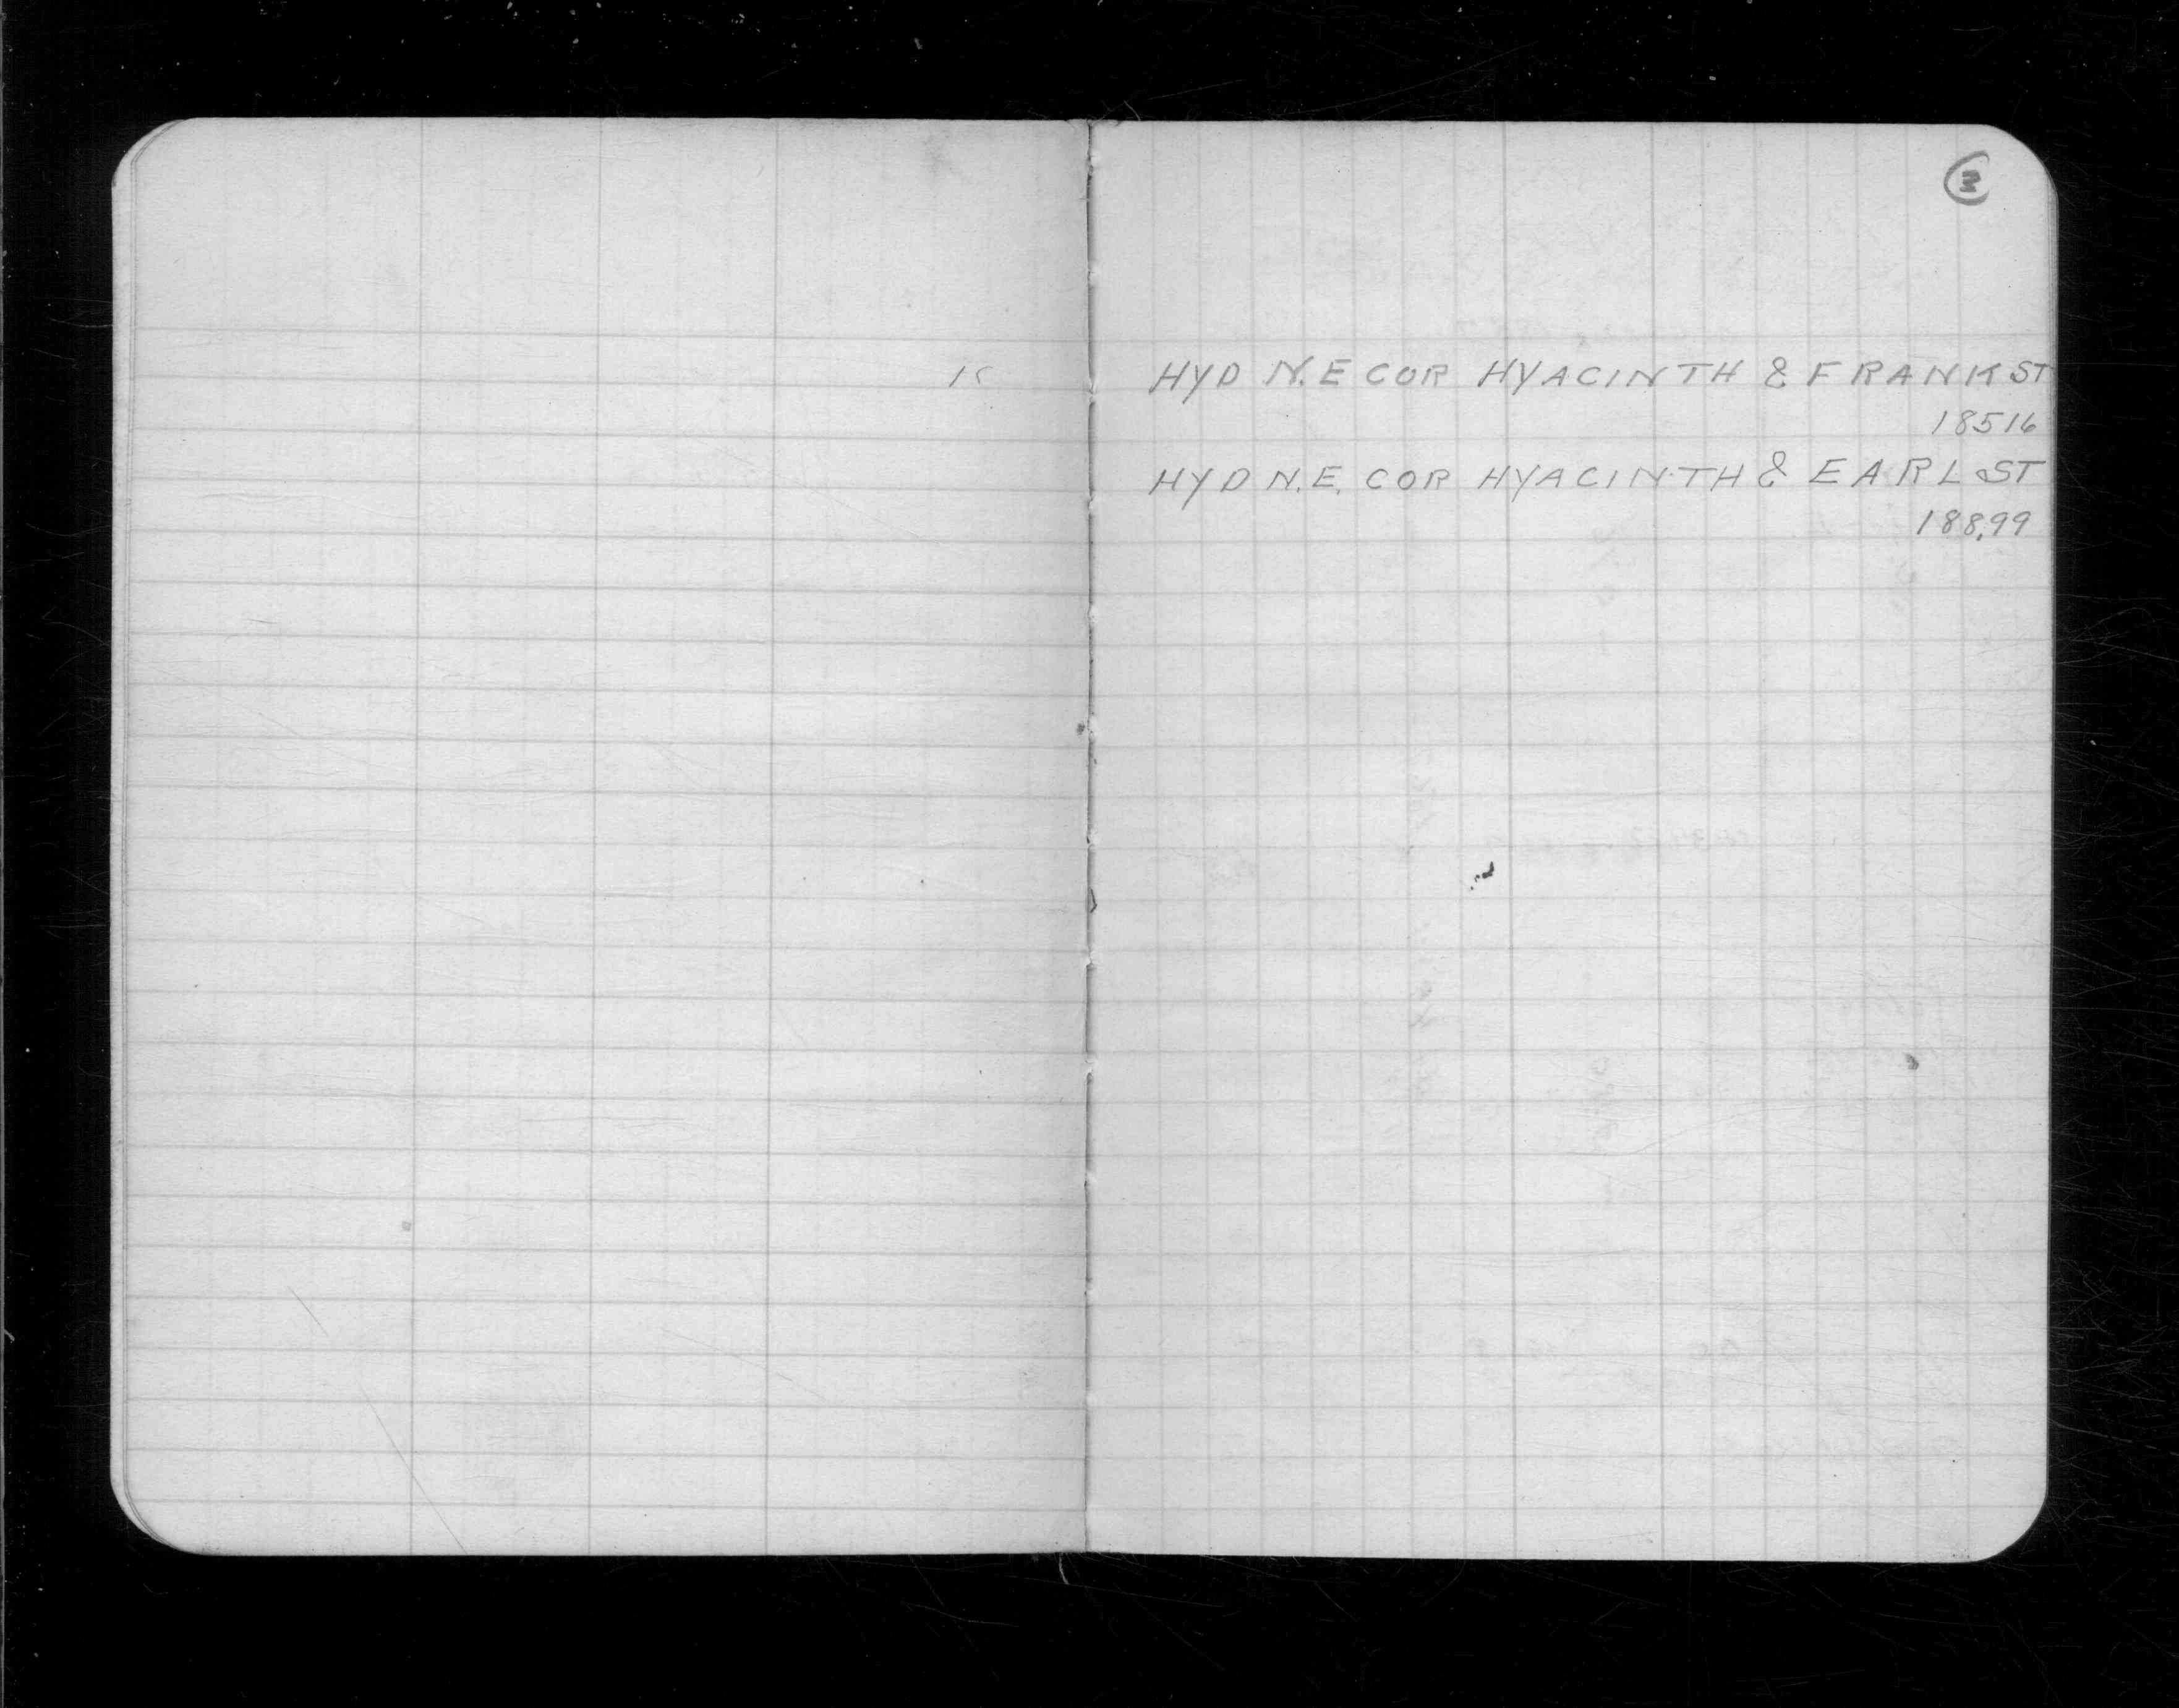 3
HYD N.E COR HYACINTH & FRANK ST
18516
HYD N.E. COR HYACINTH & EARL ST
188.99